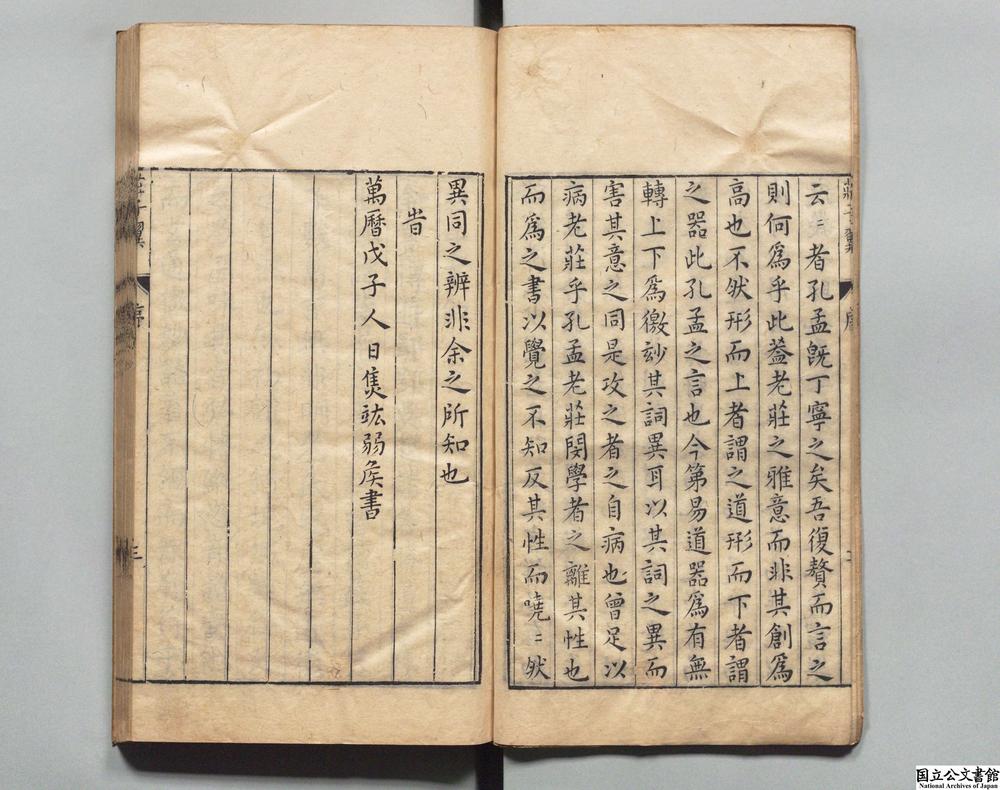 云〻者孔孟旣丁寧之矣吾復贅而言之
則何爲乎此葢老莊之雅意而非其創爲
高也不然形而上者謂之道形而下者謂
之器此孔孟之言也今第易道器爲有無
轉上下爲徼玅其詞異耳以其詞之異而
害其意之同是攻之者之自病也曾足以
病老莊乎孔孟老莊閔學者之離其性也
而爲之書以覺之不知反其性而嘵〻然
異同之辨非余之所知也
旹
萬曆戊子人日焦竑弱矦書
莊子翼
序
三
国立公文書館
National Archives of Japan